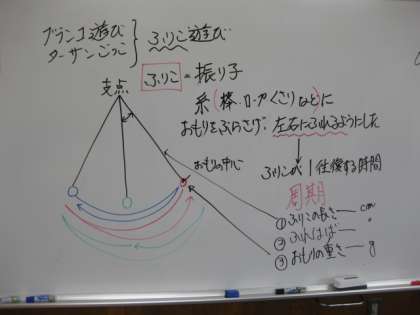 ブランコ遊び
ターザンごっこ
ふりこ遊び
ふりこ = 振り子
支点
糸(棒・ロープ・くさりなど)に
おもりをぶらさげ、左右にふれるようにした
おもりの中心
ふりこが1往復する時間
周期
①ふりこの長さ — cm
②ふれはば — °
③おもりの重さ — g